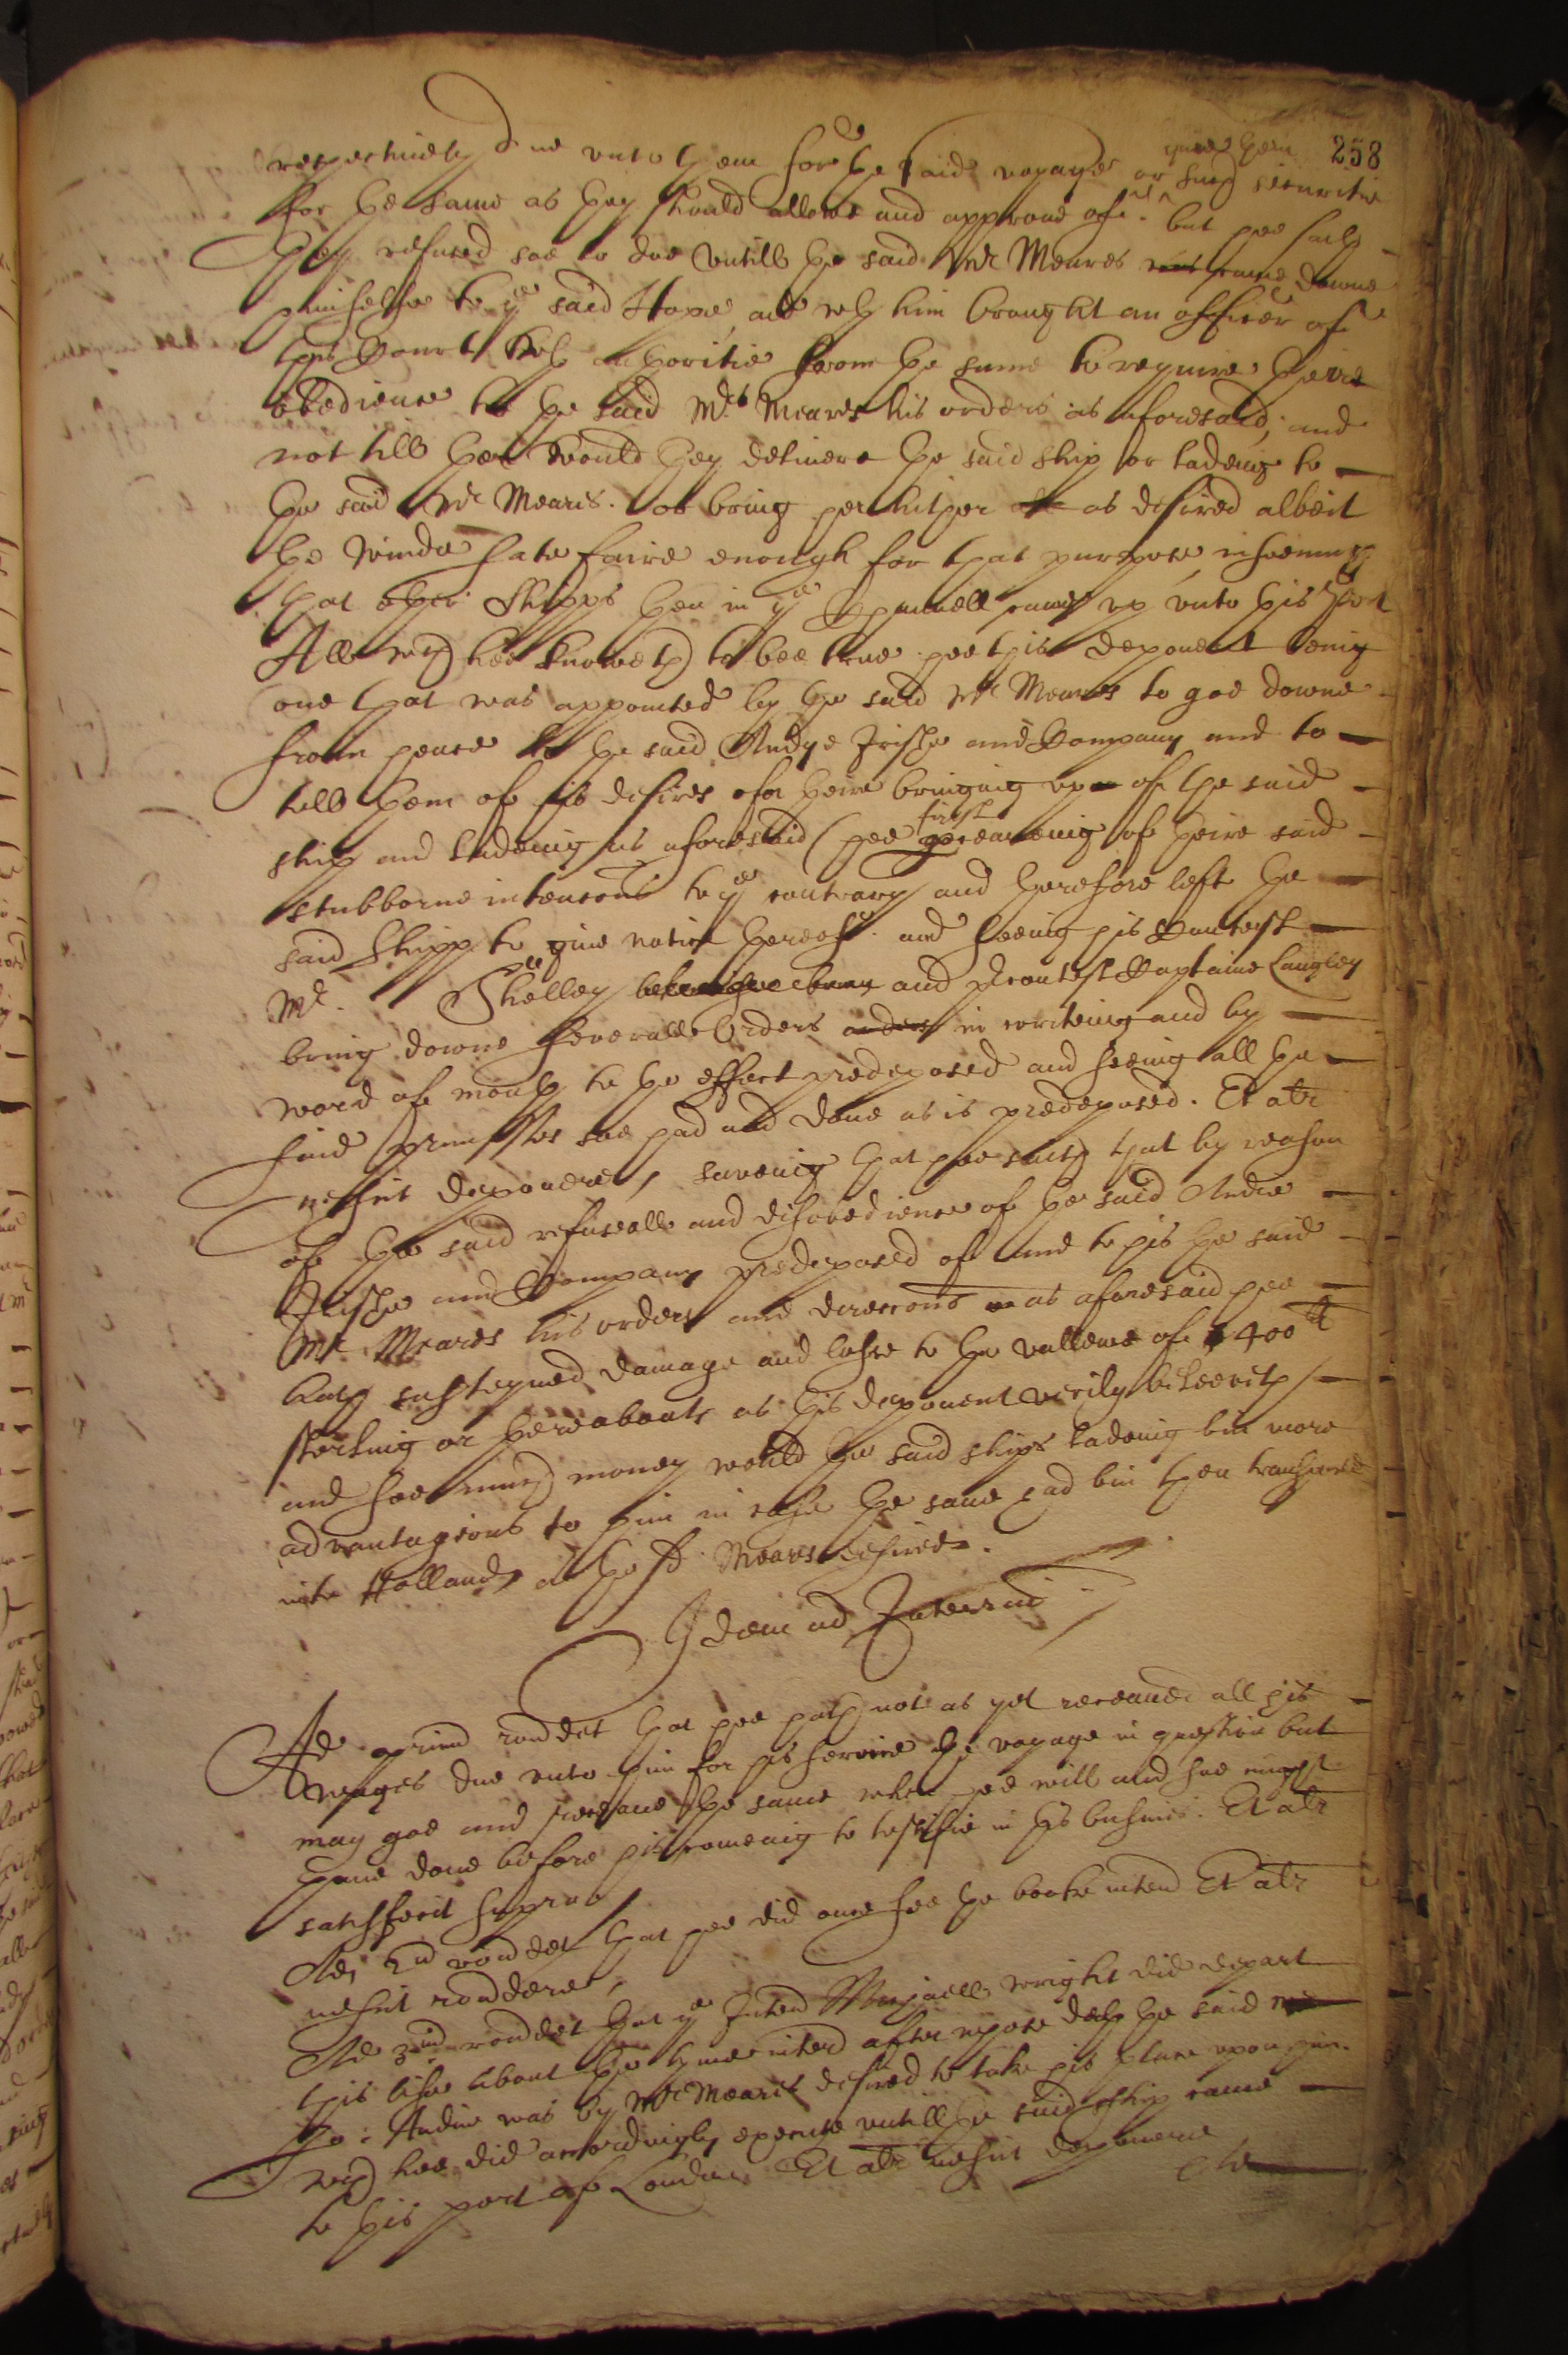 258
respectively due unto them for the said voyage or give them such securitie
for the same as they should allowe and approve of. but hee saith
they refused soe to doe untill the said Mr Meares was came downe
himselfe to ye said Hope, and with him brought an officer of
this Court with authoritie from the same to require theire
obedience to the said Mr Meares his orders as aforesaid, and
not till then would they deliver the said ship or ladeing to
the said Mr Meares. or bring her hither as desired albeit
the winde sate faire enough for that purpose, in soe much
that other shipps then in ye Channell came up unto this Port
All which hee knoweth to bee true hee this deponent being
one that was appointed by the said Mr Meares to goe downe
from hence to the said Andye Jrishe and Company and to
tell them of his desires for theire bringing up of the said
ship and ladeing as aforesaid (hee first heareing of theire said
stubborne intencons to ye contrary and therefore left the
said shipp to give notice thereof. and seeing his Contest
Mr. Shelley and precontest Captaine Langley
bring downe severall Orders orders in writeing and by
word of mouth to the effect predeposed and seeing all the
said premisses soe had and done as is predeposed. Et alr
nescit deponere, saveing that hee saith that by reason
of the said refuseall and disobedience of the said Andie
Jrishe and Company predeposed of and to his the said
Mr Meares his orders and direccons as aforesaid hee
hath susteyned damage and losse to the vallewe of 400 li
sterling or thereabouts as this deponent verily beleeveth
and soe much money would the said ships ladeing bin more
advantagious to him in case the same had bin then transported
into Holland, as the sd Meares desired.
Idem ad Interria
Ad primu rondet that hee hath not as yet receaved all his
wages due unto him for his service the voyage in question but
may goe and receave the same when hee will and soe might
have done before his comeing to testifie in this busines. Et alr
satisfecit supra
Ad 2nd rondet that hee did once see the booke interd Et alr
nescit rondere,
Ad 3nd rondet that ye Interd Michaell wright did depart
this life about the tyme interd after whose death the said
Jo: Andie was by Mr Meares desired to take his place upon him.
which hee did accordingly execute untill the said ship came
to this port of London Et alr nescit deponere
Ad